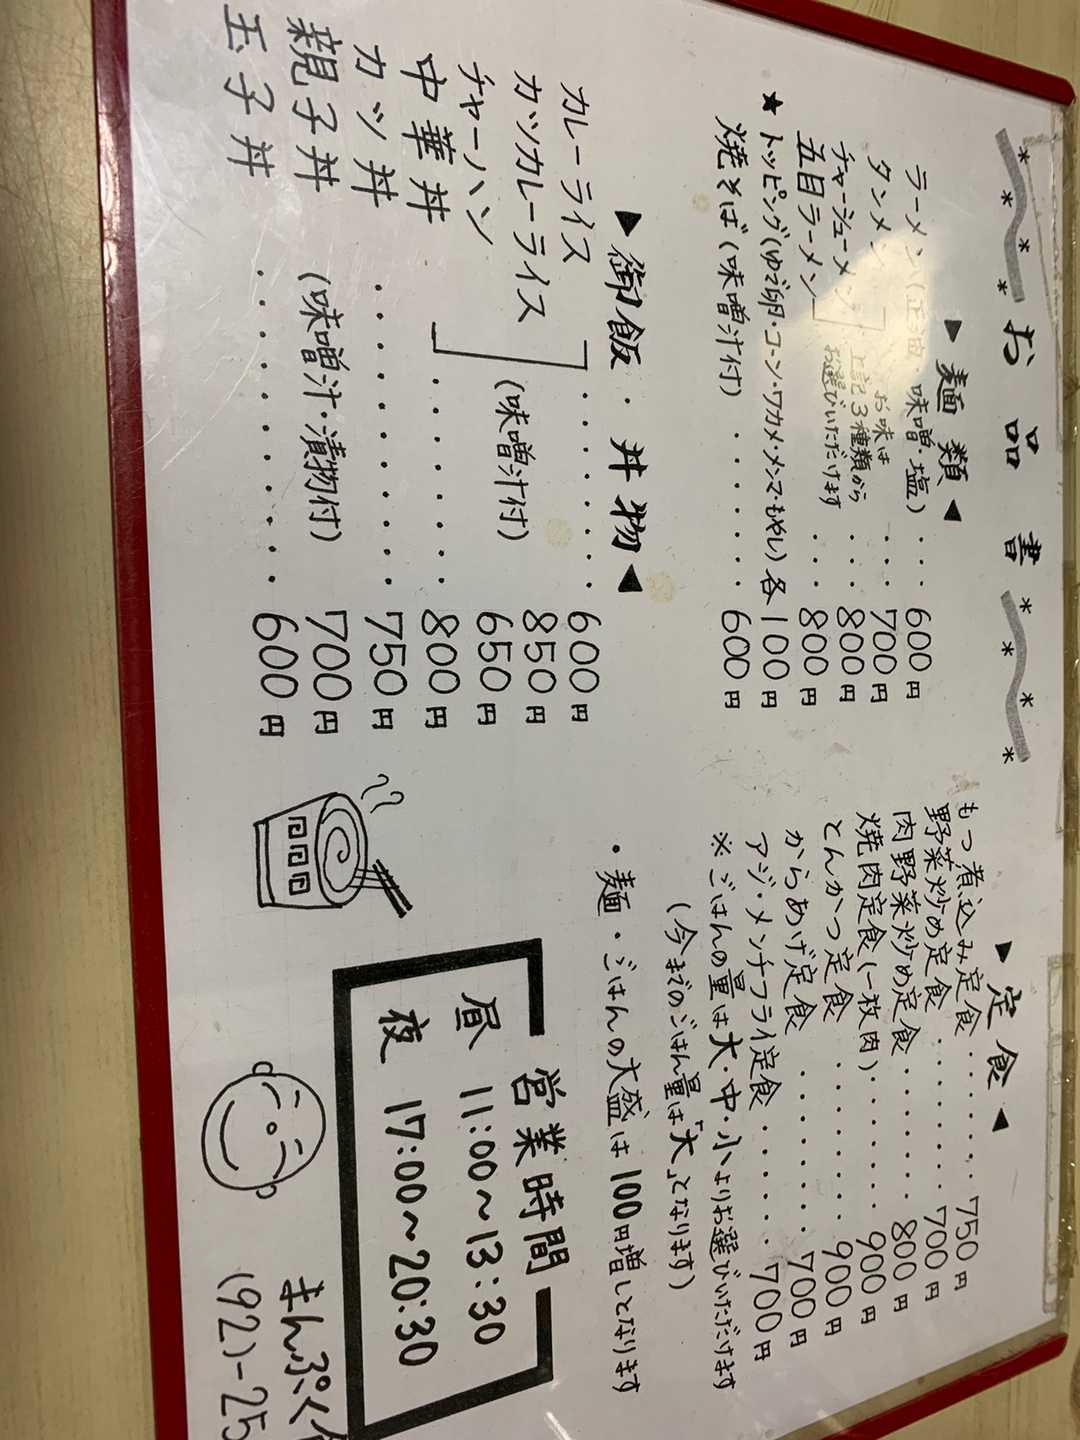 お品書
▶麺類◀
ラーメン(正油・味噌・塩)・・・600円
タンメン・・・700円
チャーシューメン・・・800円
五目ラーメン・・・800円
お味は
上記3種類から
お選びいただけます
★トッピング(ゆで卵・コーン・ワカメ・メンマ・もやし)各100円
焼そば(味噌汁付)・・・・・・・600円
▶御飯・丼物◀
カレーライス・・・・・・・・600円
カツカレーライス 850円
チャーハン 650円
(味噌汁付)
中華丼・・・・・・・・800円
カツ丼・・・・・・・・・・・750円
親子丼 700円
(味噌汁・漬物付)
玉子丼・・・・・・・・・・・・600円
▶定食◀
もつ煮込み定食・・・・・・・750円
野菜炒め定食・・・・・・・・700円
肉野菜炒め定食・・・・・・・800円
焼肉定食(一枚肉)・・・・・・・900円
とんかつ定食・・・・・・・・900円
からあげ定食・・・・・・・・700円
アジ・メンチフライ定食・・・・・・700円
※ごはんの量は大・中・小よりお選びいただけます
(今までのごはん量は「大」となります)
・麺・ごはんの大盛は100円増しとなります
営業時間
昼 11:00〜13:30
夜 17:00〜20:30
まんぷく
(92)-25